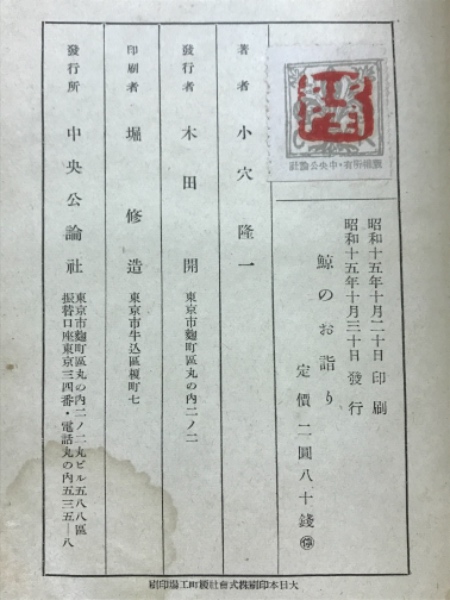 昭和十五年十月二十日印刷
昭和十五年十月三十日發行
鯨のお詣り
定價 二圓八十錢 ㊝
版權所有・中央公論社
著者 小穴隆一
發行者 木田開
東京市麴町區丸の内二ノ二
印刷者 堀修造
東京市牛込區榎町七
發行所 中央公論社
東京市麴町區丸の内二ノ二丸ビル五八八區
振替口座東京三四番・電話丸の内五三五一八
大日本印刷株式會社榎町工場印刷